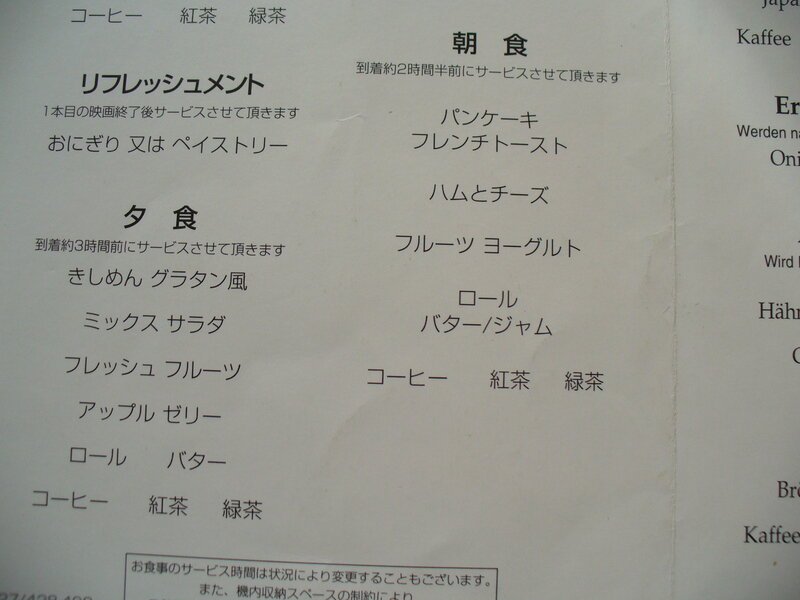 コーヒー 紅茶 緑茶
リフレッシュメント
1本目の映画終了後サービスさせて頂きます
おにぎり 又は ペイストリー
夕 食
到着約3時間前にサービスさせて頂きます
きしめん グラタン風
ミックス サラダ
フレッシュ フルーツ
アップル ゼリー
ロール バター
コーヒー 紅茶 緑茶
朝 食
到着約2時間半前にサービスさせて頂きます
パンケーキ
フレンチトースト
ハムとチーズ
フルーツ ヨーグルト
ロール
バター/ジャム
コーヒー 紅茶 緑茶
お食事のサービス時間は状況により変更することもございます。
また、機内収納スペースの制約により
Kaffee
Er
Werden na
Oni
Wird
Hähn
Brö
Kaffee